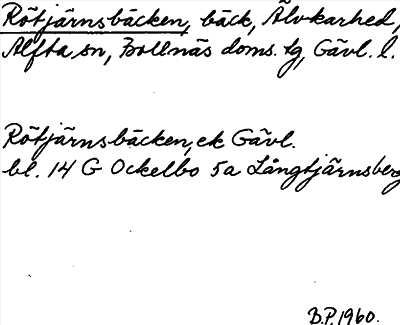 Rötjärnsbäcken, bäck, Älvkarhed,
Alfta sn, Bollnäs doms. tg, Gävl. l.
Rötjärnsbäcken, ek Gävl.
bl. 14 G Ockelbo 5a Långtjärnsberg
B.P. 1960.